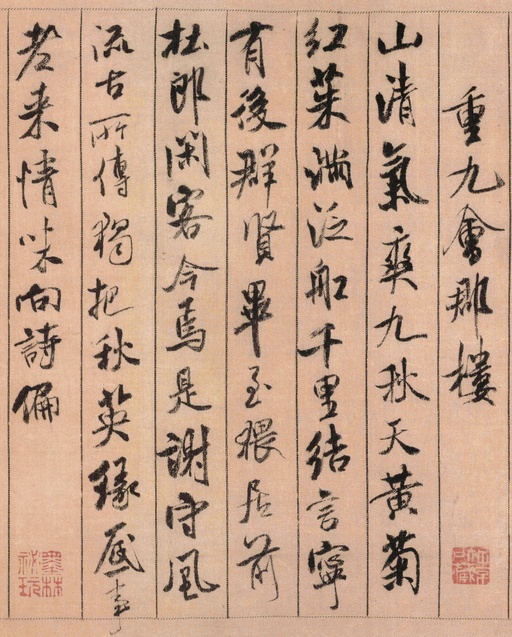 重九會郡樓
山清氣爽九秋天黃菊
紅茱滿泛船千里結言寧
有後群賢畢至猥居前
杜郎閑客今焉是謝守風
流古所傳獨把秋英緣底事
老来情味向詩偏
墨林祕玩